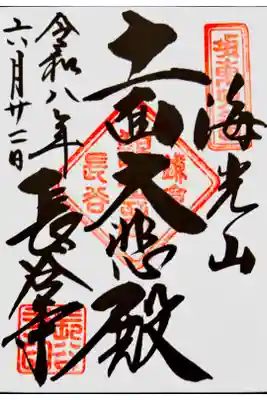 海光山
十一面大悲殿
鎌倉
長谷
令和八年
六月廿二日
長谷寺